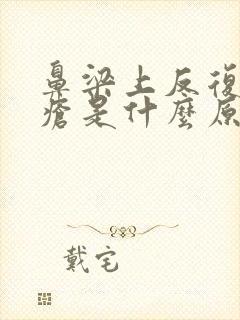 鼻梁上反復
瘡是什麼原
戴宅